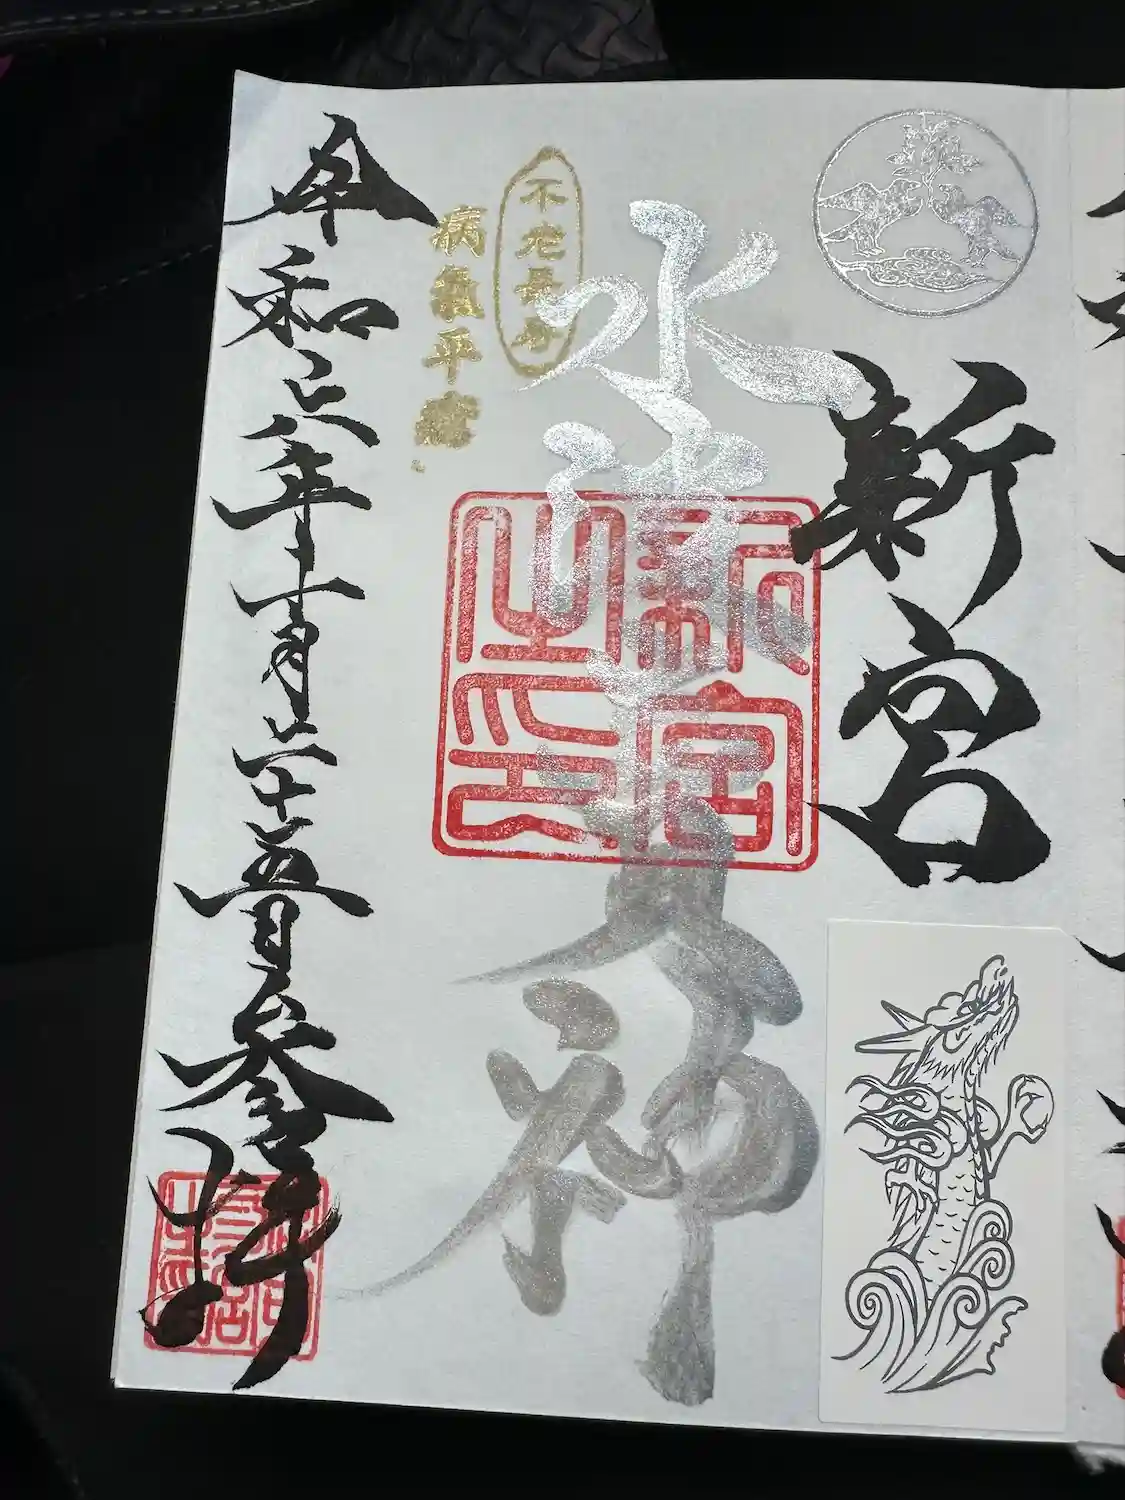 新宮
水
大神
新宮之印
不老長寿
病氣平癒
令和三年十月二十五日参拝